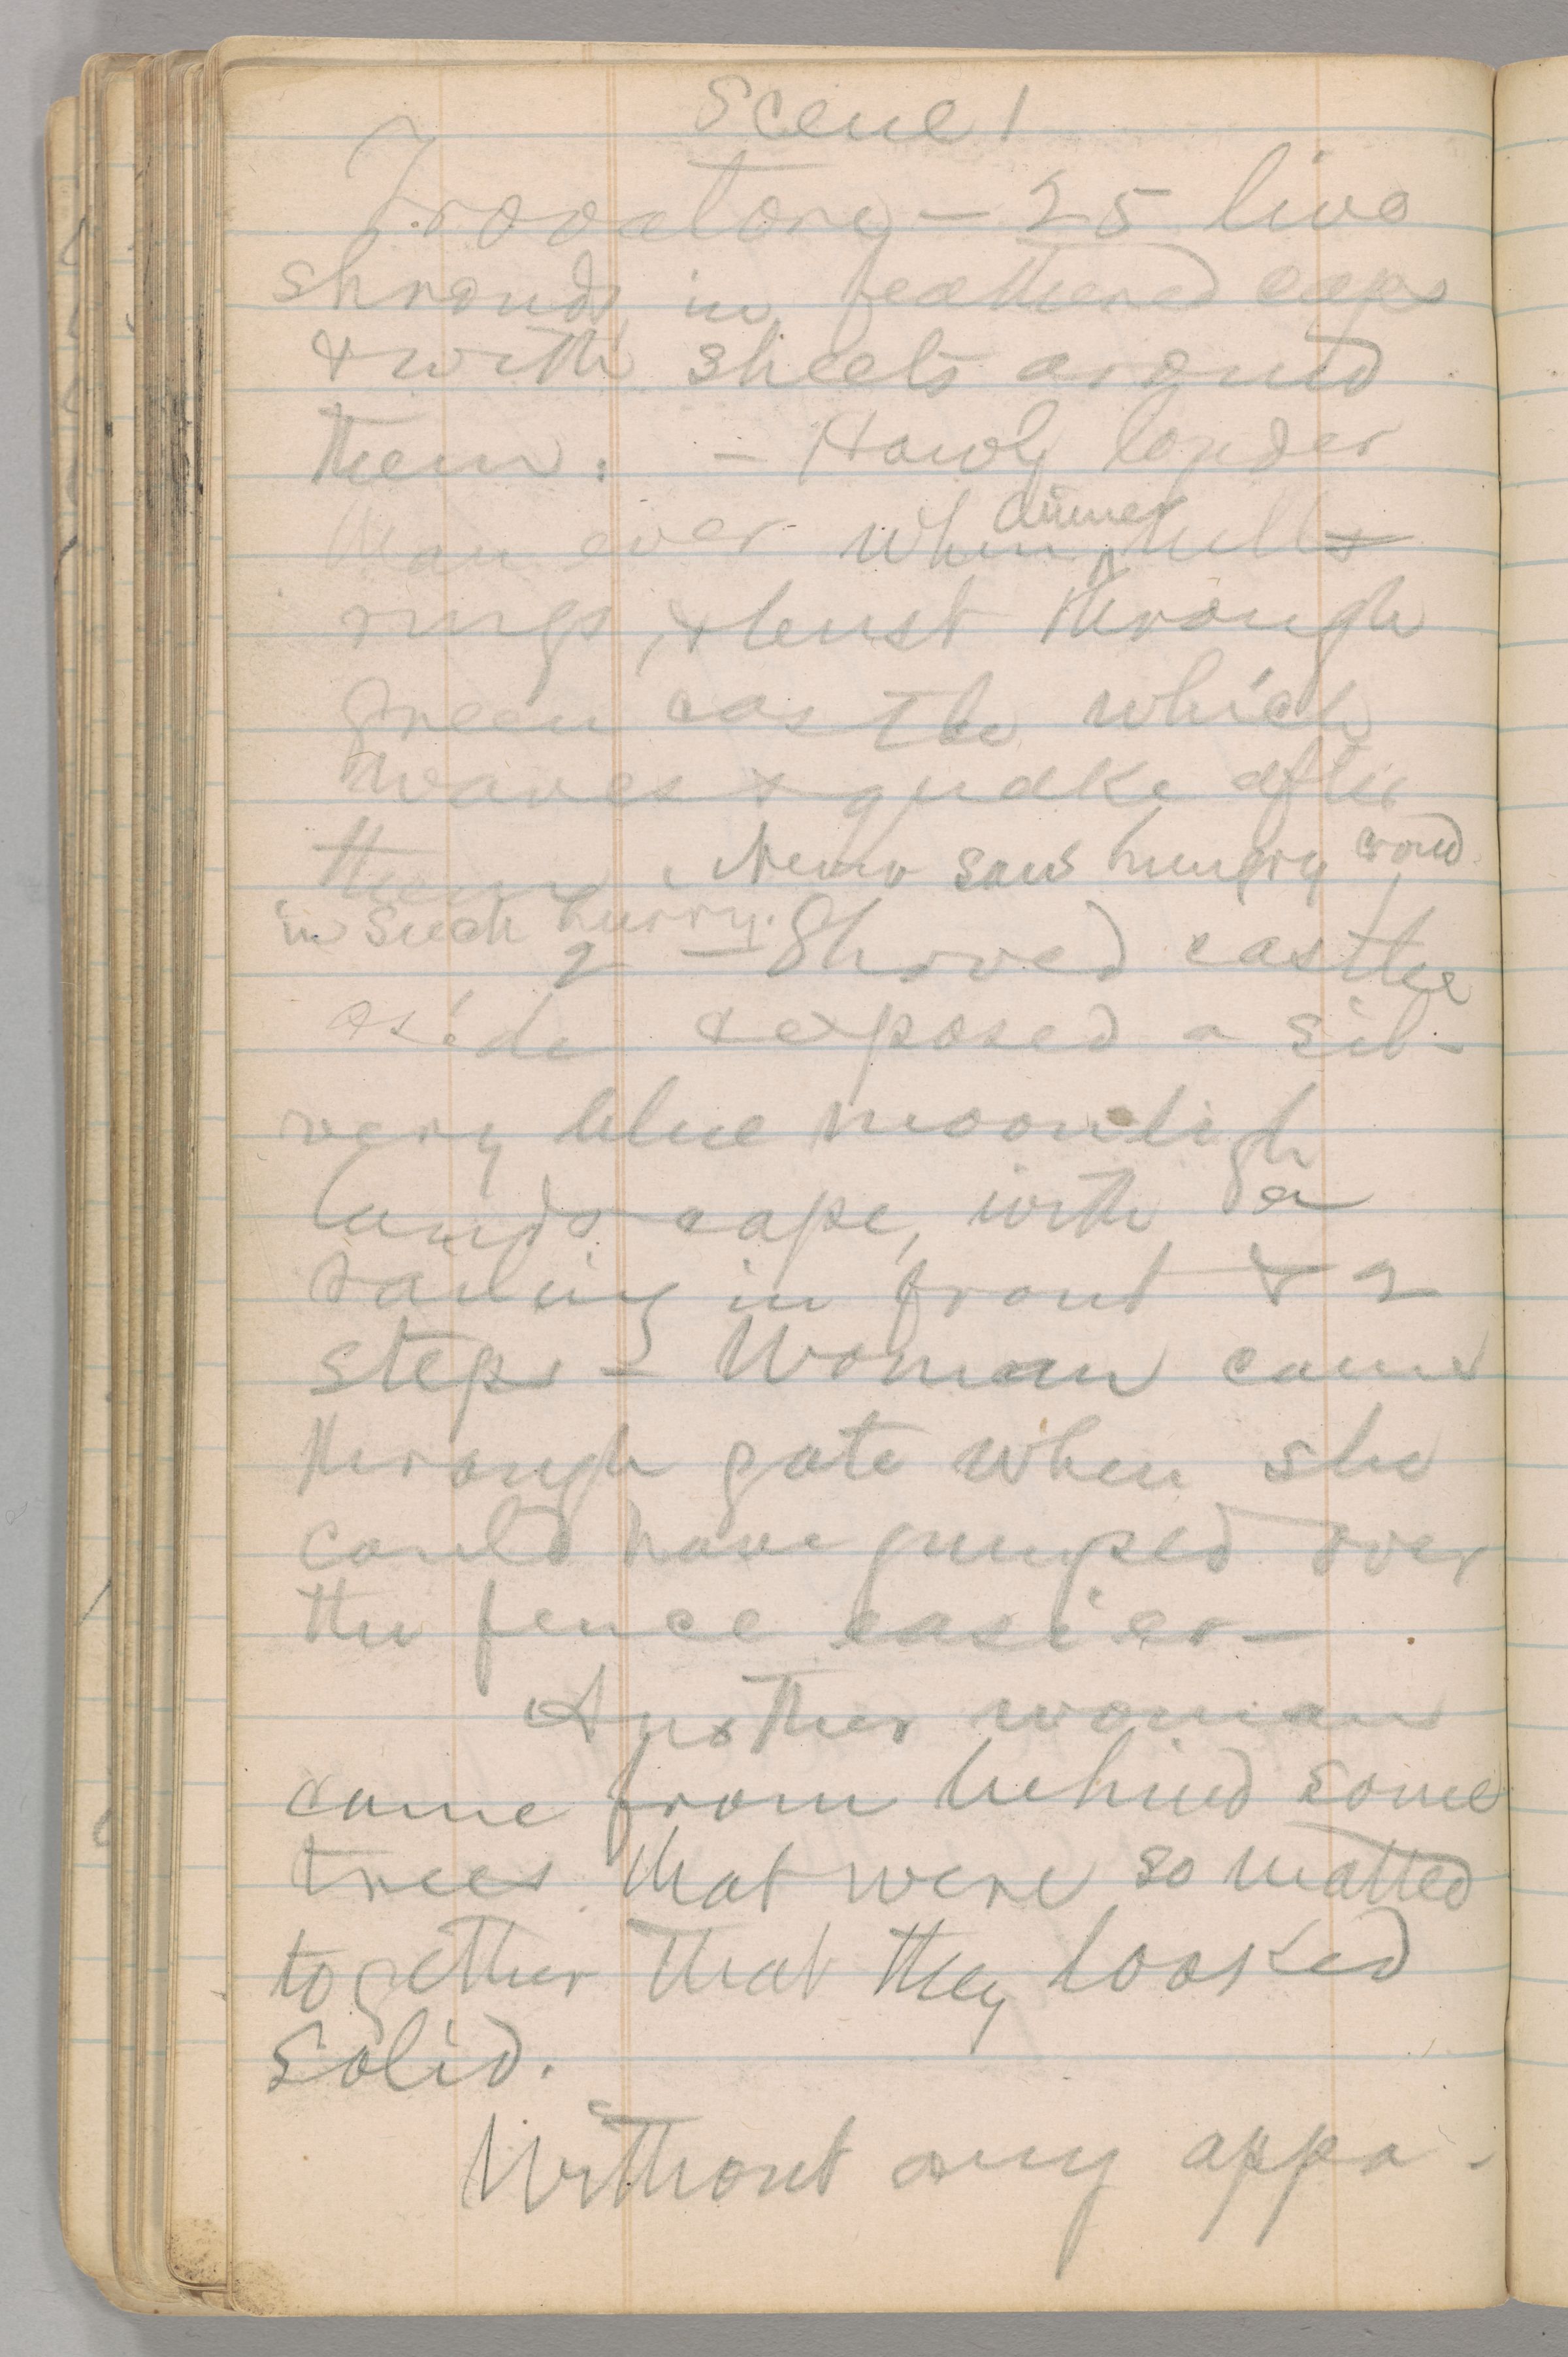 Scene 1
Trovatory — 25 live
shrouds in feathered caps
& with sheets around
them. — Howl louder
than ever when dinner bells
rings, & bust through
green castle which
waves & quake after
them. Never saw hungry crowd
in such hurry.
2 — Shoved castle
aside & exposed a sil-
very blue moonligh
landscape, with a
railing in front & 2
steps — Woman came
through gate when she
could have jumped over
the fence easier —
Another woman
came from behind some
trees that were so matted
together that they looked
solid.
Without any appa-